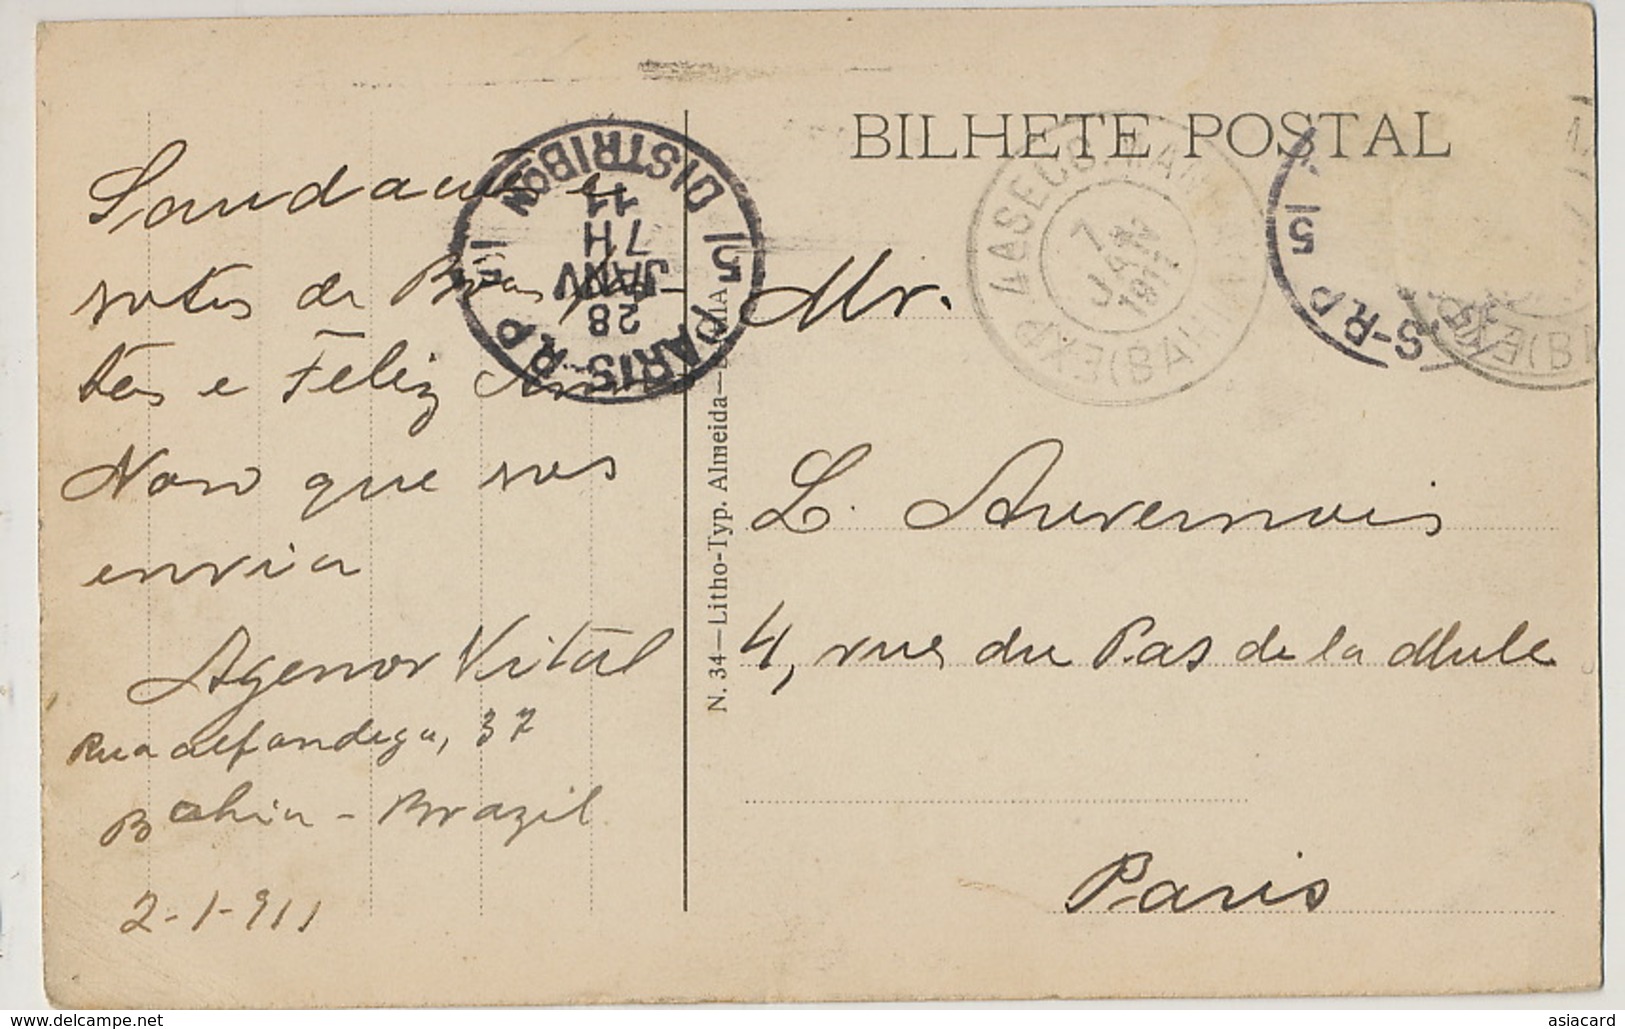 BILHETE POSTAL
Saudações e
votos de Boas Fes-
tas e Feliz Anno
Novo que vos
envia
Agenor Vital
Rua Alfandega, 37
Bahia - Brazil
2-1-911
Mr.
L. Auvernois
4, rue du Pas de la Mule
Paris
N. 34—Litho-Typ. Almeida—BAHIA
PARIS-R.P
DISTRIBON
28
JANV
7H
11
5
4ASECO
7
JAN
1911
EXP
(BAHIA)
5
S-R.P
www.delcampe.net
asiacard